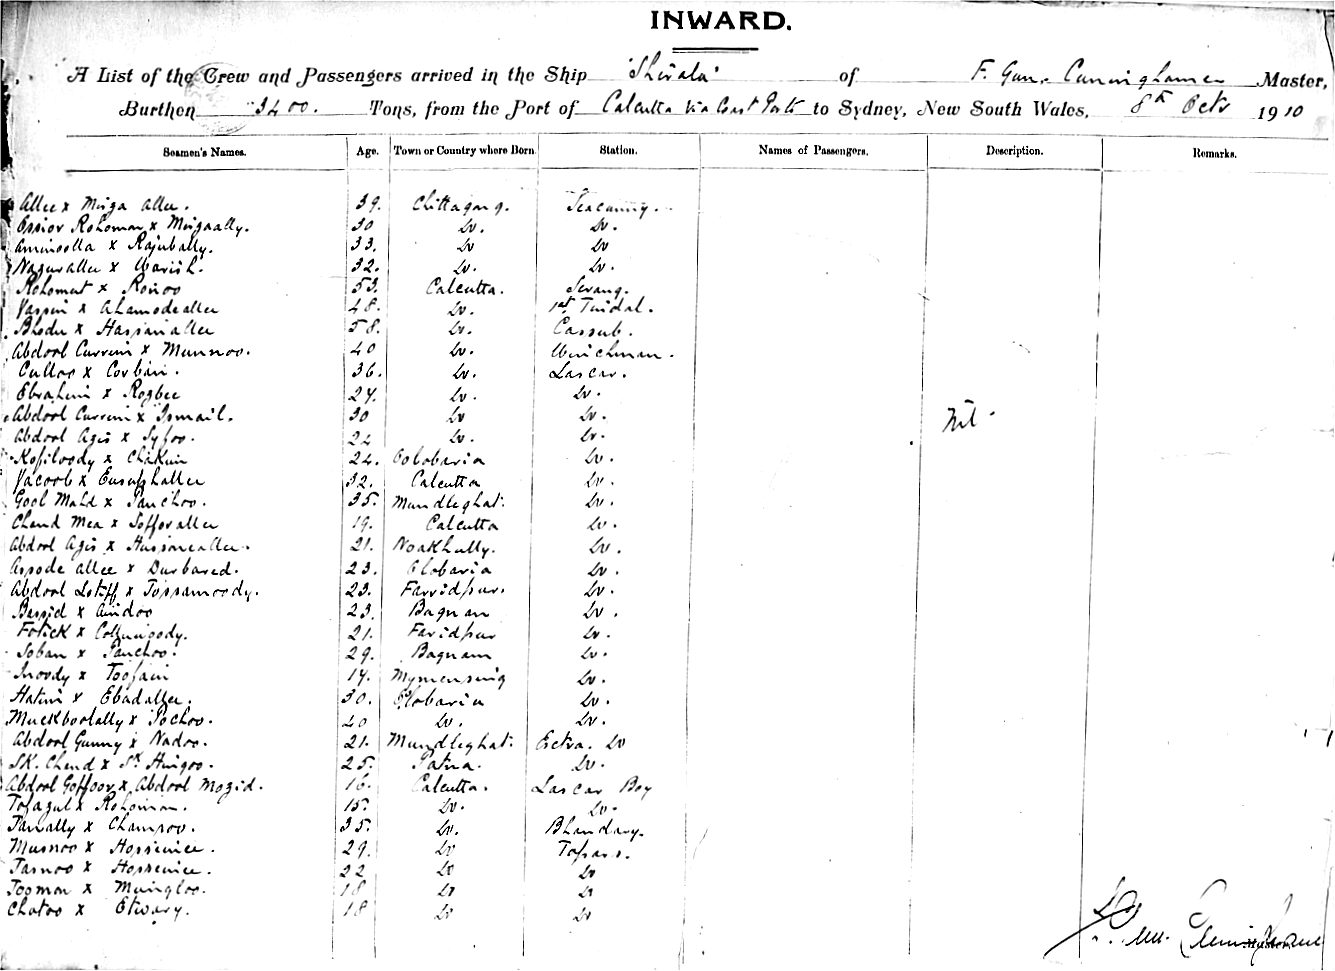 INWARD.
A List of the Crew and Passengers arrived in the Ship "Shirala" of F. Cunningham Master,
Burthen 3400. Tons, from the Port of Calcutta via Coast Ports to Sydney, New South Wales, 8th Octr 1910
Seamen's Names. Age. Town or Country where Born. Station. Names of Passengers. Description. Remarks.
Allee x Mirga Allee. 39. Chittagong. Seacunny.
Ossior Rohoman x Mirgaally. 30 Do. Do.
Aminoolla x Rajubally. 33. Do Do
Nagurallee x Warish. 32. Do. Do.
Rohomut x Ronoo 53. Calcutta. Serang.
Yassin x Ahamodeallee 48. Do. 1st Tindal.
Bhodu x Hassanallee 58. Do. Cassub.
Abdool Currim x Munnoo. 40 Do. Winchman.
Culloo x Corban. 36. Do. Lascar.
Ebrahim x Rogbee 24. Do. Do.
Abdool Currim x Ismail. 30 Do Do.
Abdool Agis x Syfoo. 22 Do. Do.
Kofiloody x Chakum 24. Oolobaria Do.
Yacoob x Eusuphallee 32. Calcutta Do.
Gool Mahd x Panchoo. 35. Mundleghat. Do.
Chand Mea x Sofforallee 19. Calcutta Do.
Abdool Agis x Hussaneallee. 21. Noakhully. Do.
Assode Allee x Durbared. 23. Olobaria Do.
Abdool Lotiff x Tossamoody. 23. Farridpur. Do.
Bassid x Aindoo 23. Bagnan Do.
Fotick x Collumoody. 21. Faridpur Do.
Soban x Panchoo. 29. Bagnan Do.
Inoody x Toofain 19. Mymensing Do.
Hatim x Ebadallee. 30. Olobaria Do.
Muckboolally x Pochoo. 40 Do. Do.
Abdool Gunny x Nadoo. 21. Mundleghat. Extra. Do
SK. Chand x Sk Hingoo. 25. Patna. Do.
Abdool Goffoor x Abdool Mogid. 16. Calcutta. Lascar Boy
Tofazul x Rohoman. 15. Do. Do.
Panally x Champoo. 35. Do. Bhandary.
Musnoo x Hossenice. 29. Do Topass.
Jasnoo x Hossenice. 22 Do Do
Toomon x Mungloo. 18 Do Do
Chotoo x Etwary. 18 Do Do
Nil.